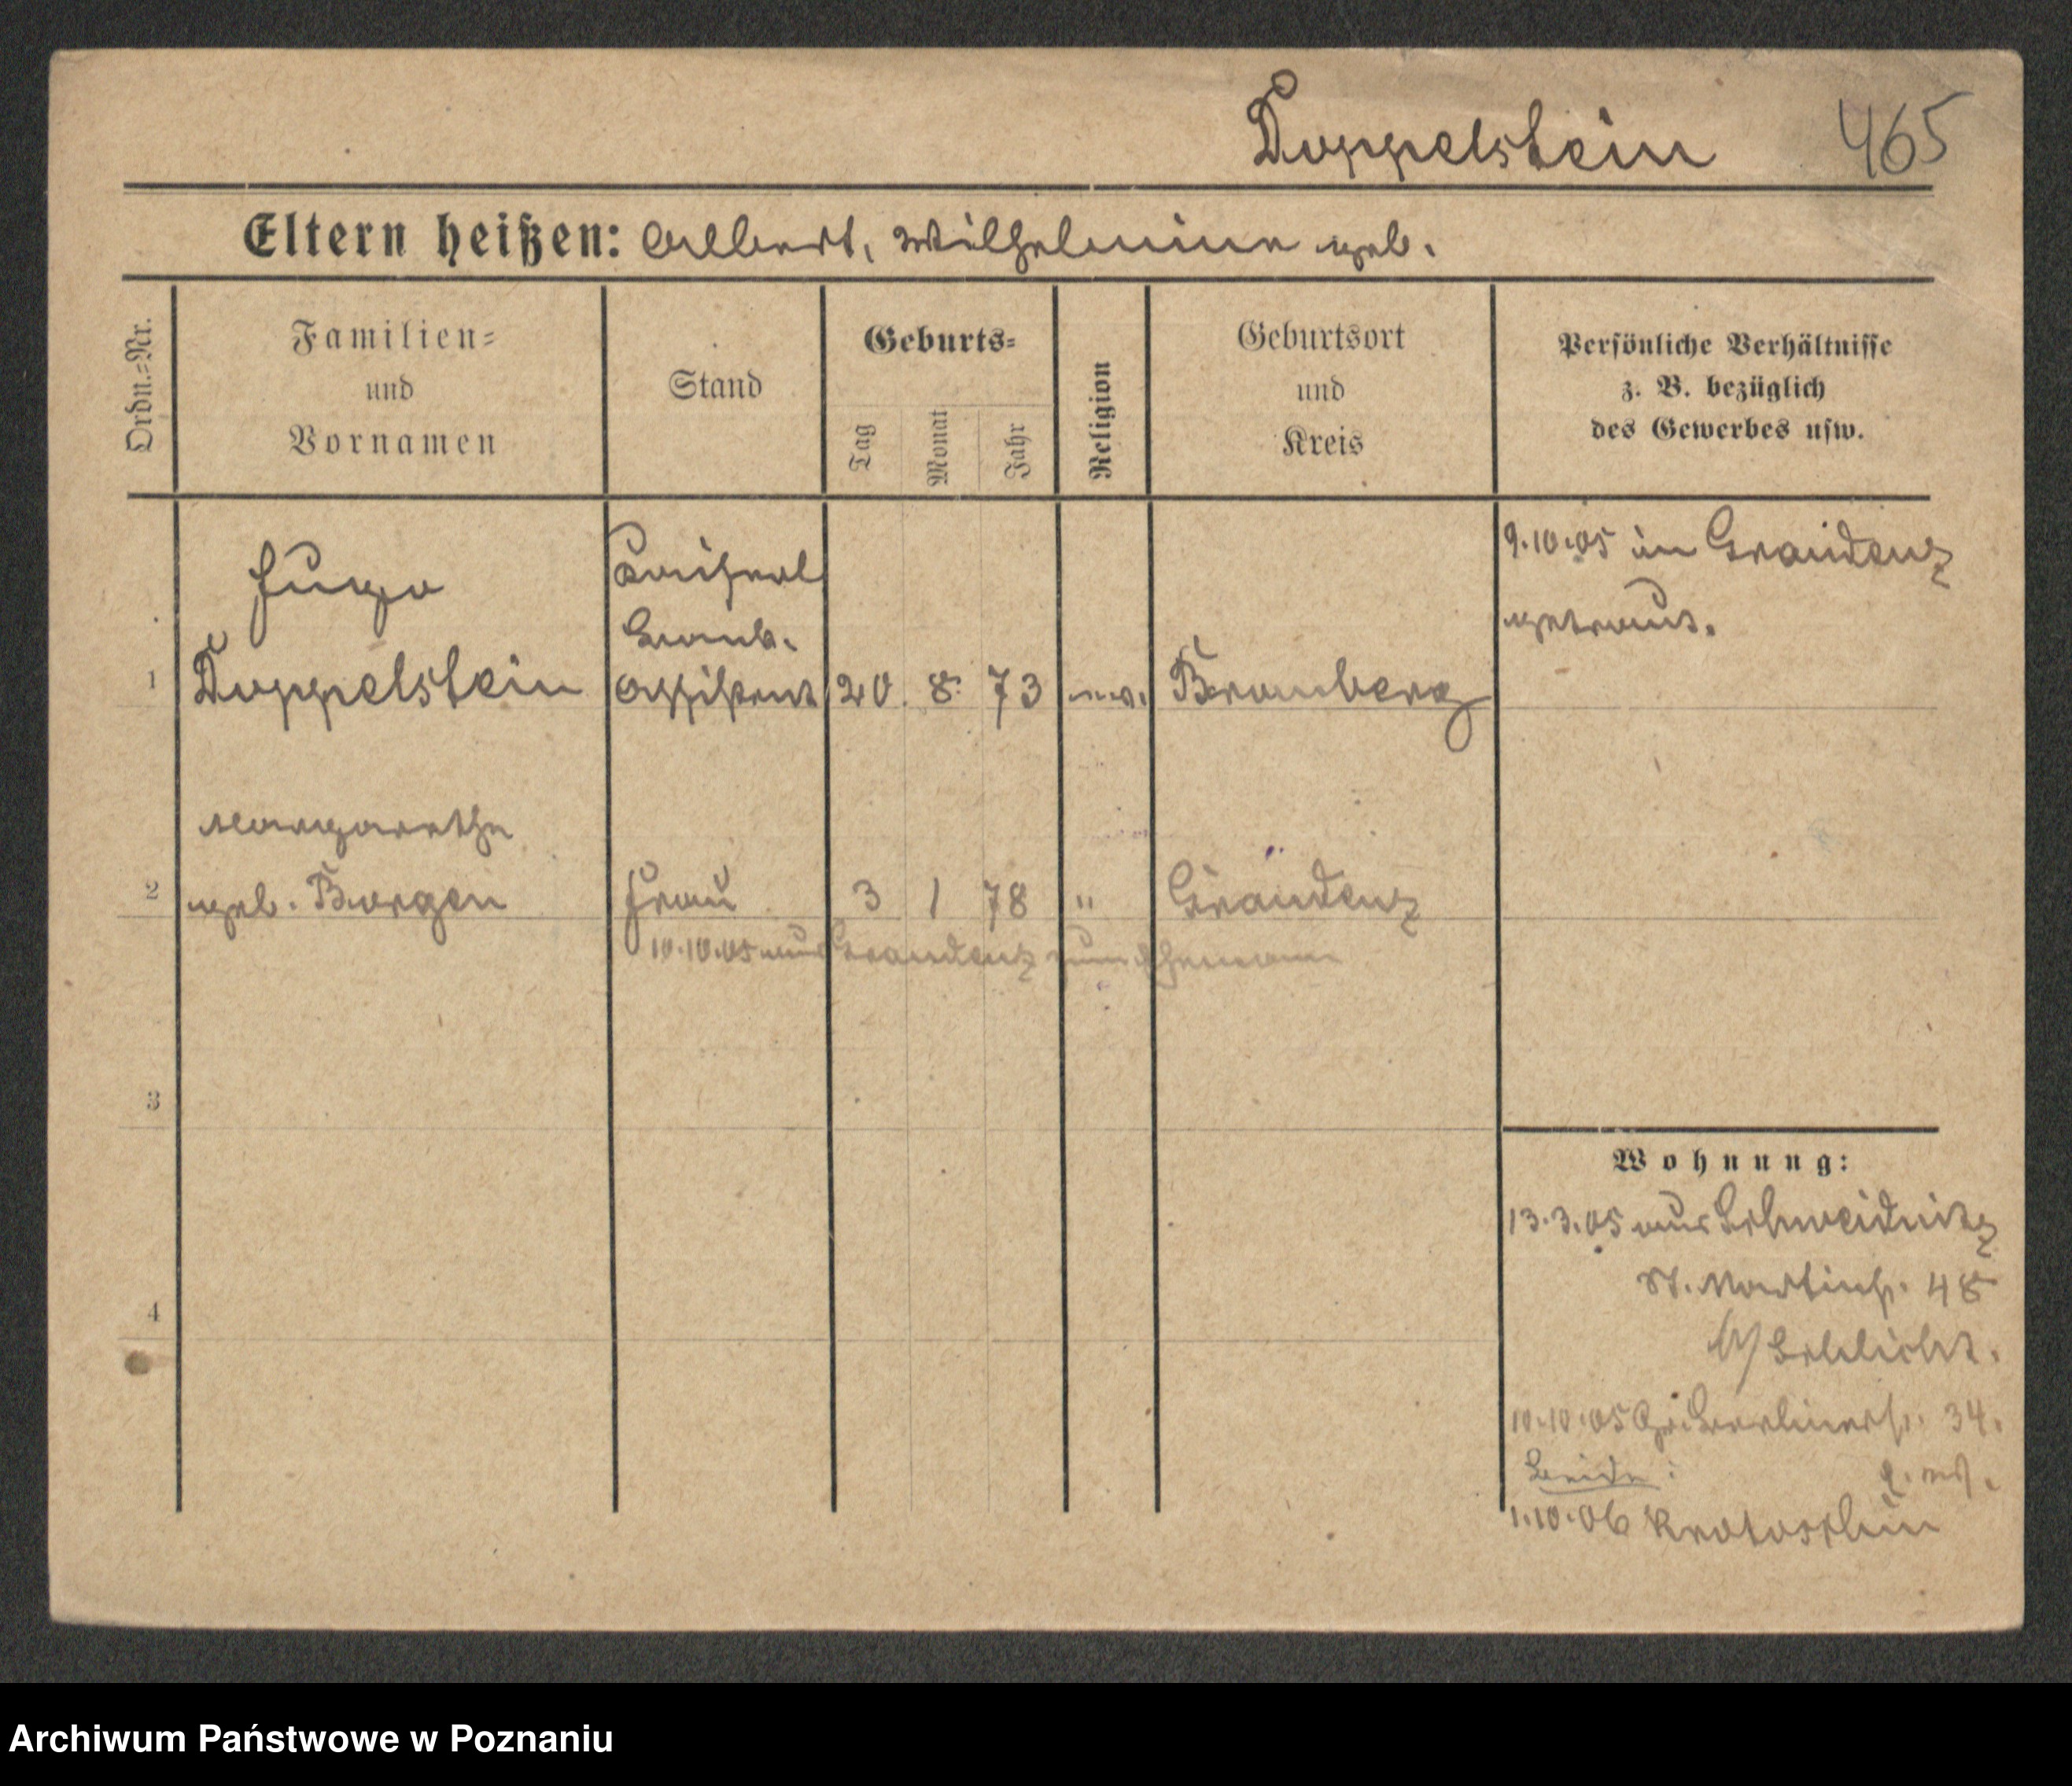 Doppelstein 465
Eltern heißen: Albert, Wilhelmine geb.
Ordn.-Nr.
Familien-
und
Vornamen
Stand
Geburts-
Tag
Monat
Jahr
Religion
Geburtsort
und
Kreis
Persönliche Verhältnisse
z. B. bezüglich
des Gewerbes usw.
9.10.05 in Graudenz
getraut.
Hugo
Kaiserl
Bank.
1 Doppelstein Assistent 20. 8. 73 ev. Bromberg
Margarethe
2 geb. Borgen Frau 3 1 78 " Graudenz
10.10.05 aus Graudenz zum Ehemann
3
Wohnung:
13.3.05 aus Schweidnitz
St. Martinstr. 48
b/ Schlicht.
4
10.10.05 Gr. Berlinerstr. 34.
Beide:
1.10.06 Krotoschin
Archiwum Państwowe w Poznaniu